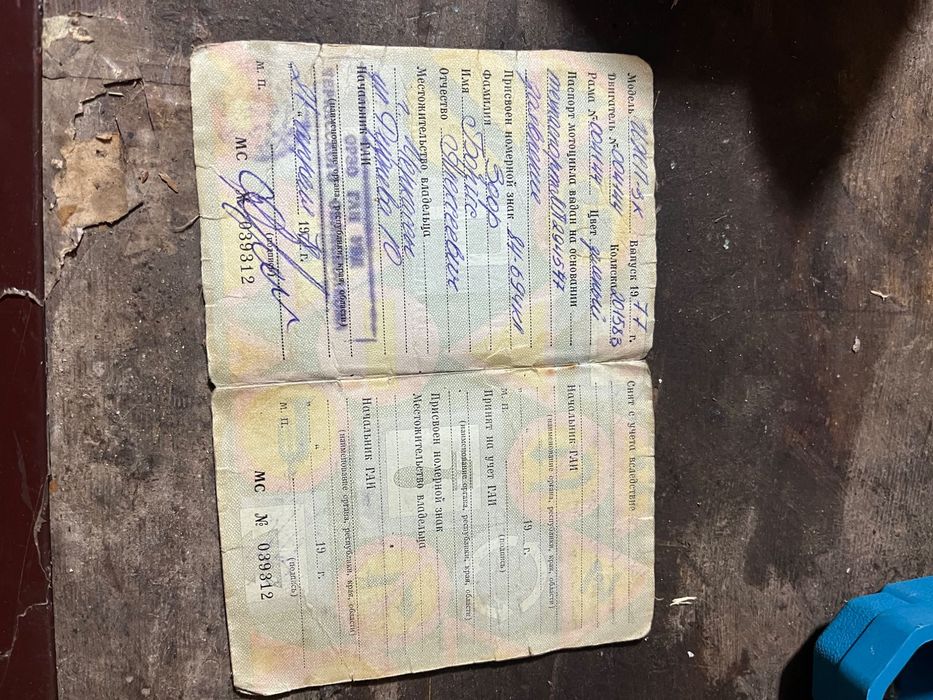 Модель ИЖП-3К Выпуск 1977 г.
Двигатель № 001414 Коляска 201583
Рама № 001414 Цвет
Паспорт мотоцикла выдан на основании
241547
Присвоен номерной знак
Фамилия Згер
Имя Борис
Отчество Алексеевич
Местожительство владельца
г.
ул.
Начальник ГАИ
ОРЭО ГАИ УВД
(наименование органа, республики, края, области)
197 г.
(подпись)
М. П.
МС № 039312
Снят с учета вследствие
Начальник ГАИ
(наименование органа, республики, края, области)
" " 19 г.
(подпись)
М. П.
Принят на учет ГАИ
(наименование органа, республики, края, области)
Присвоен номерной знак
Местожительство владельца
Начальник ГАИ
(наименование органа, республики, края, области)
" " 19 г.
(подпись)
М. П.
МС № 039312